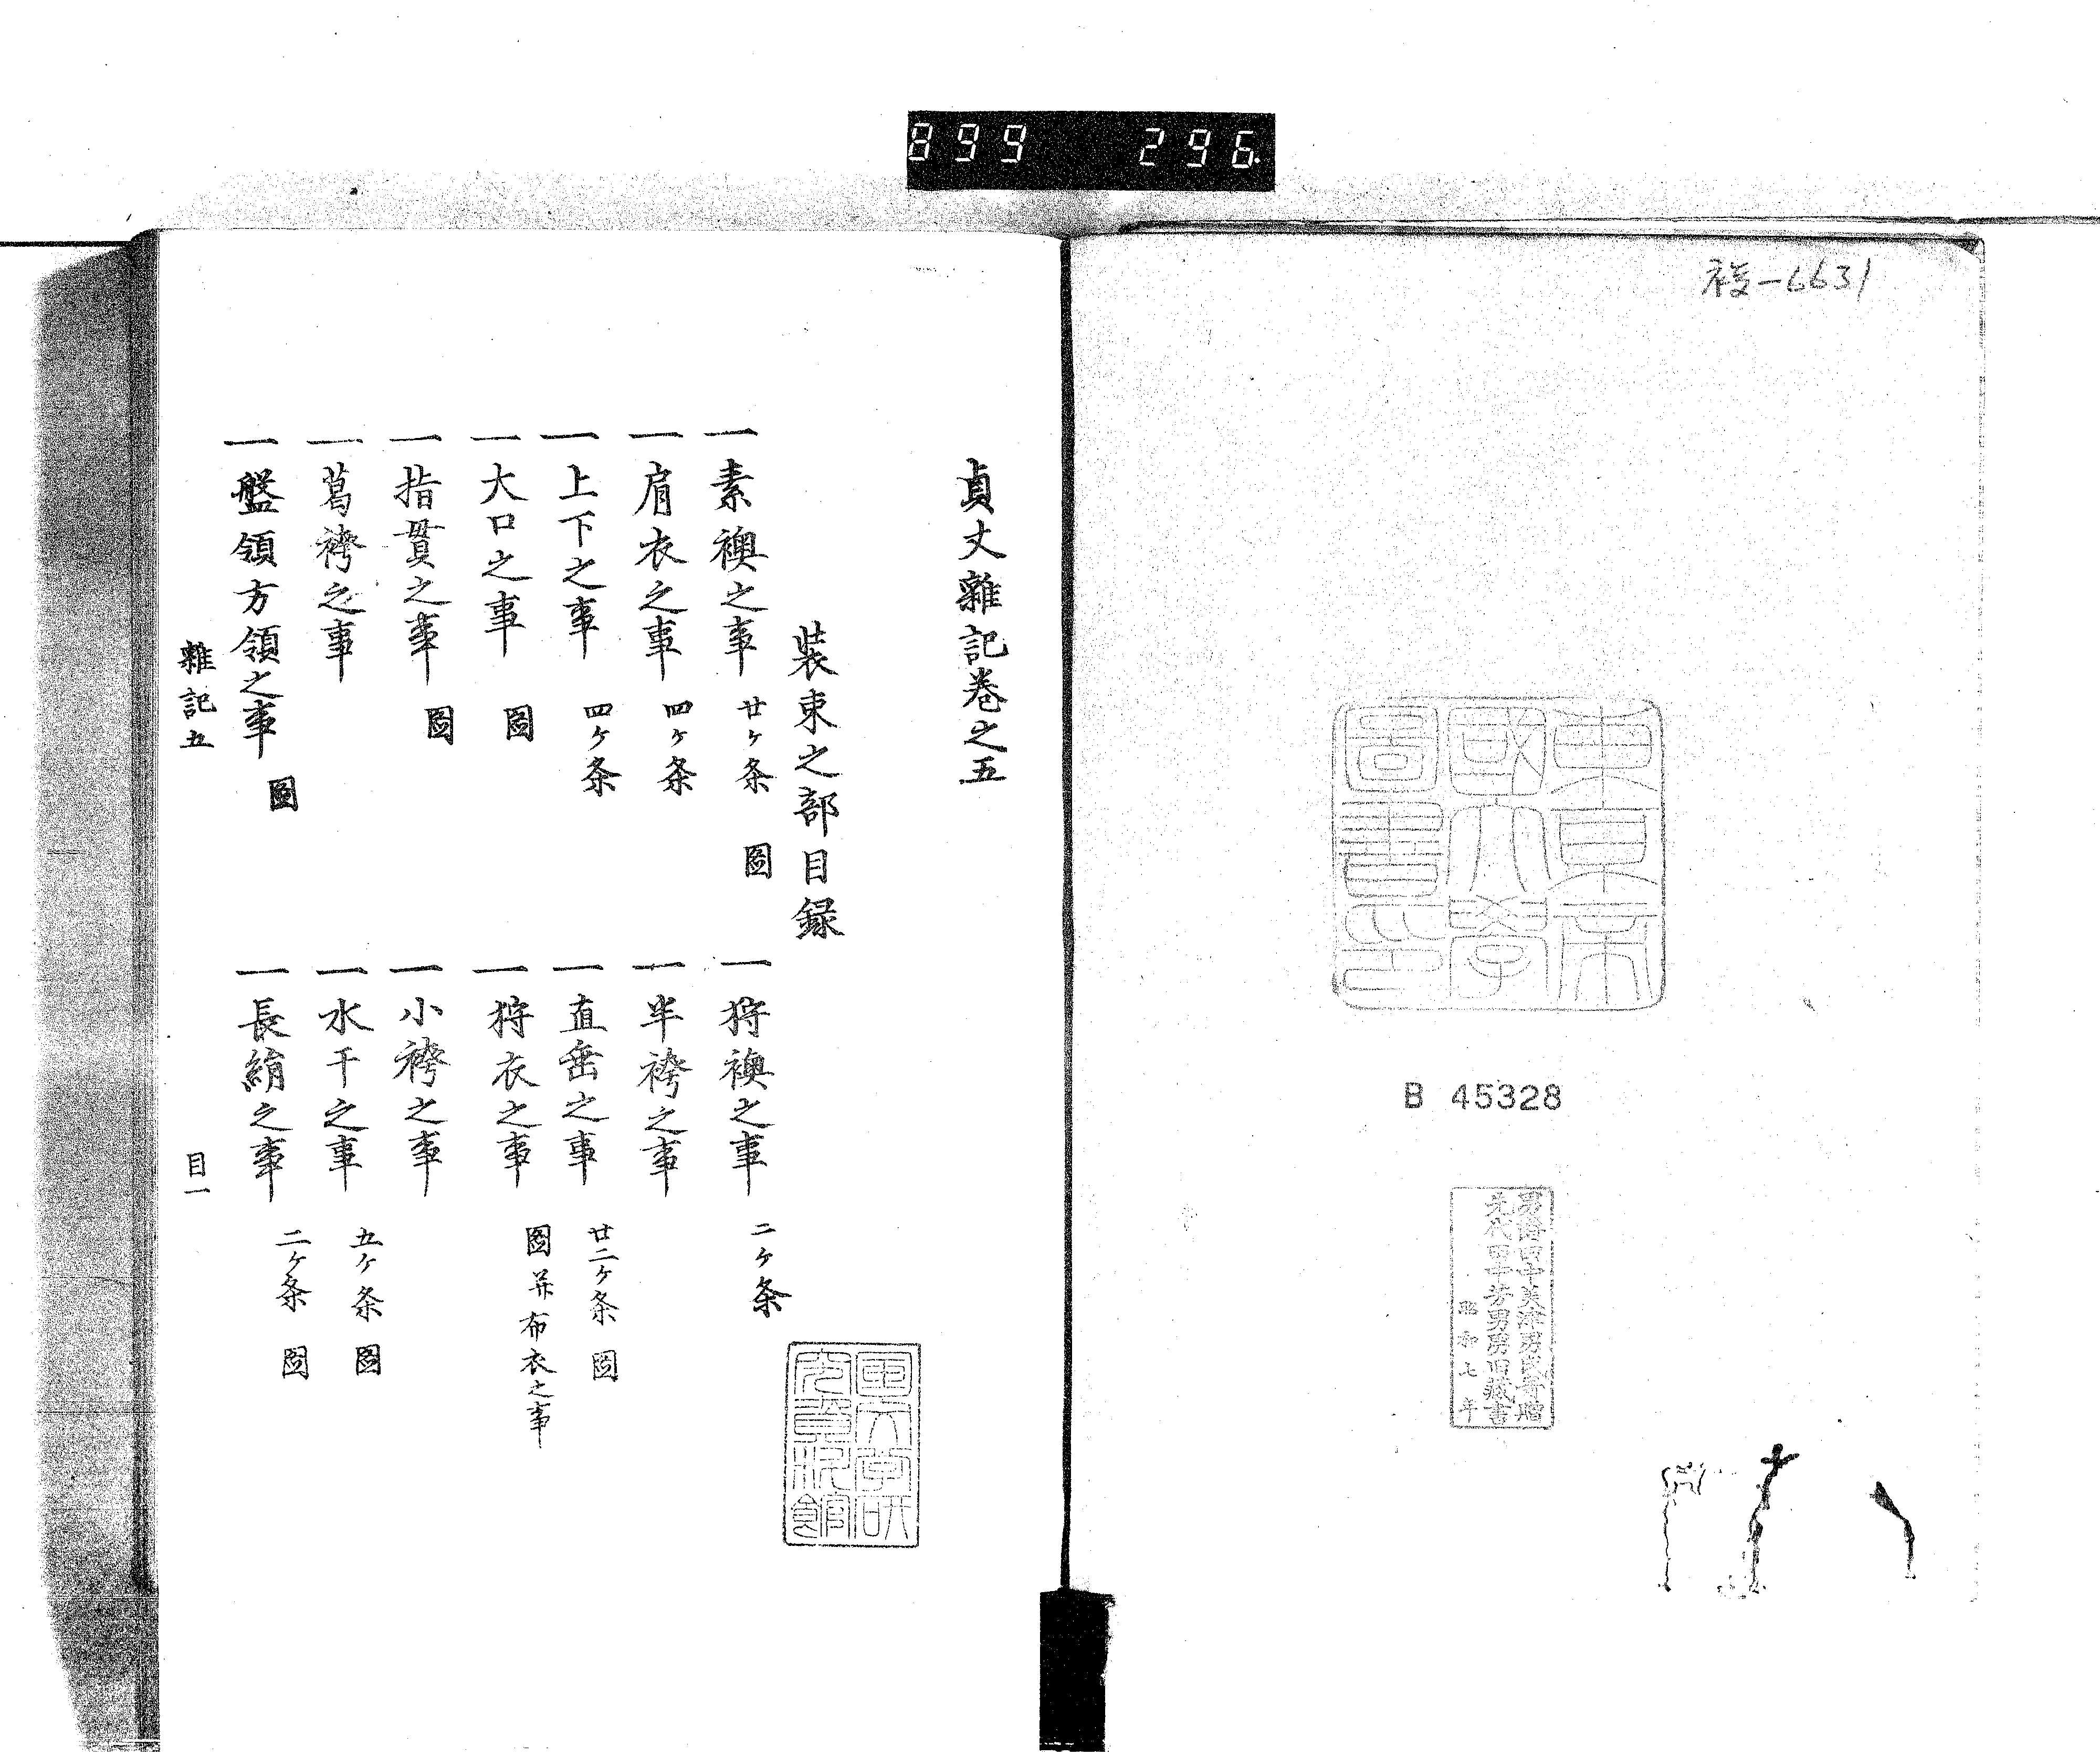 899 296
複-6631
東京帝
國大學
圖書印
B 45328
男爵田中美津男氏寄贈
先代田中芳男男旧蔵書
昭和七年
貞丈雜記巻之五
装束之部目録
一素襖之事 廿ケ条 圖
一狩襖之事 二ケ条
一肩衣之事 四ケ条
一半袴之事
一上下之事 四ケ条
一直垂之事 廿二ケ条 圖
一大口之事 圖
一狩衣之事 圖并布衣之事
一指貫之事 圖
一小袴之事
一葛袴之事
一水干之事 五ケ条 圖
一盤領方領之事 圖
一長絹之事 二ケ条 圖
雜記五 目一